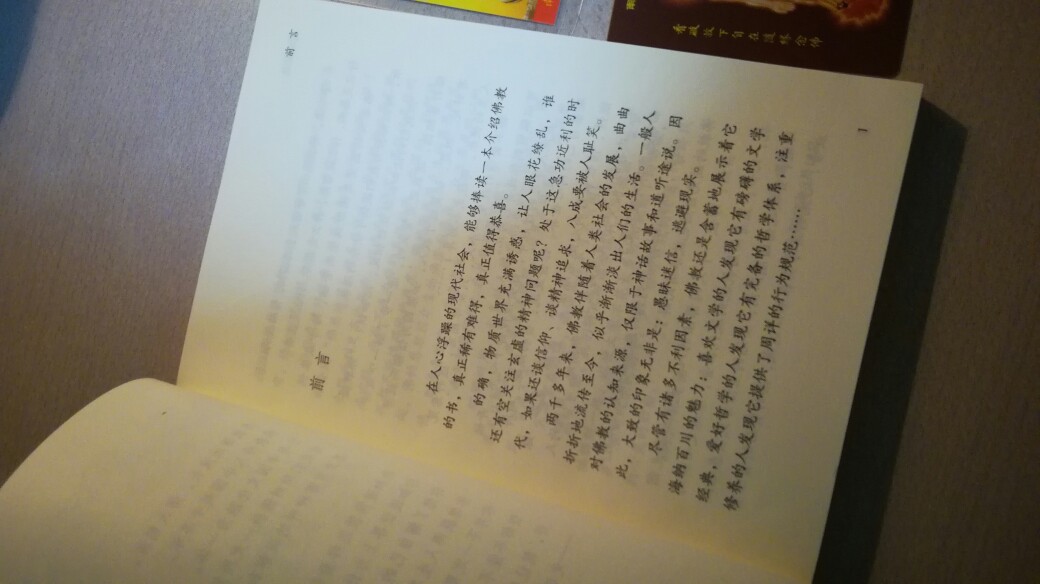 前言
前言
在人心浮躁的现代社会，能够捧读一本介绍佛教
的书，真正稀有难得，真正值得恭喜。
的确，物质世界充满诱惑，让人眼花缭乱，谁
还有空关注玄虚的精神问题呢？处于这急功近利的时
代，如果还谈信仰、谈精神追求，八成要被人耻笑。
两千多年来，佛教伴随着人类社会的发展，曲曲
折折地流传至今，似乎渐渐淡出人们的生活。一般人
对佛教的认知来源，仅限于神话故事和道听途说。因
此，大致的印象无非是：愚昧迷信，逃避现实。
尽管有诸多不利因素，佛教还是含蓄地展示着它
海纳百川的魅力：喜欢文学的人发现它有磅礴的文学
经典，爱好哲学的人发现它有完备的哲学体系，注重
修养的人发现它提供了周详的行为规范……
1
看破放下自在随缘念佛